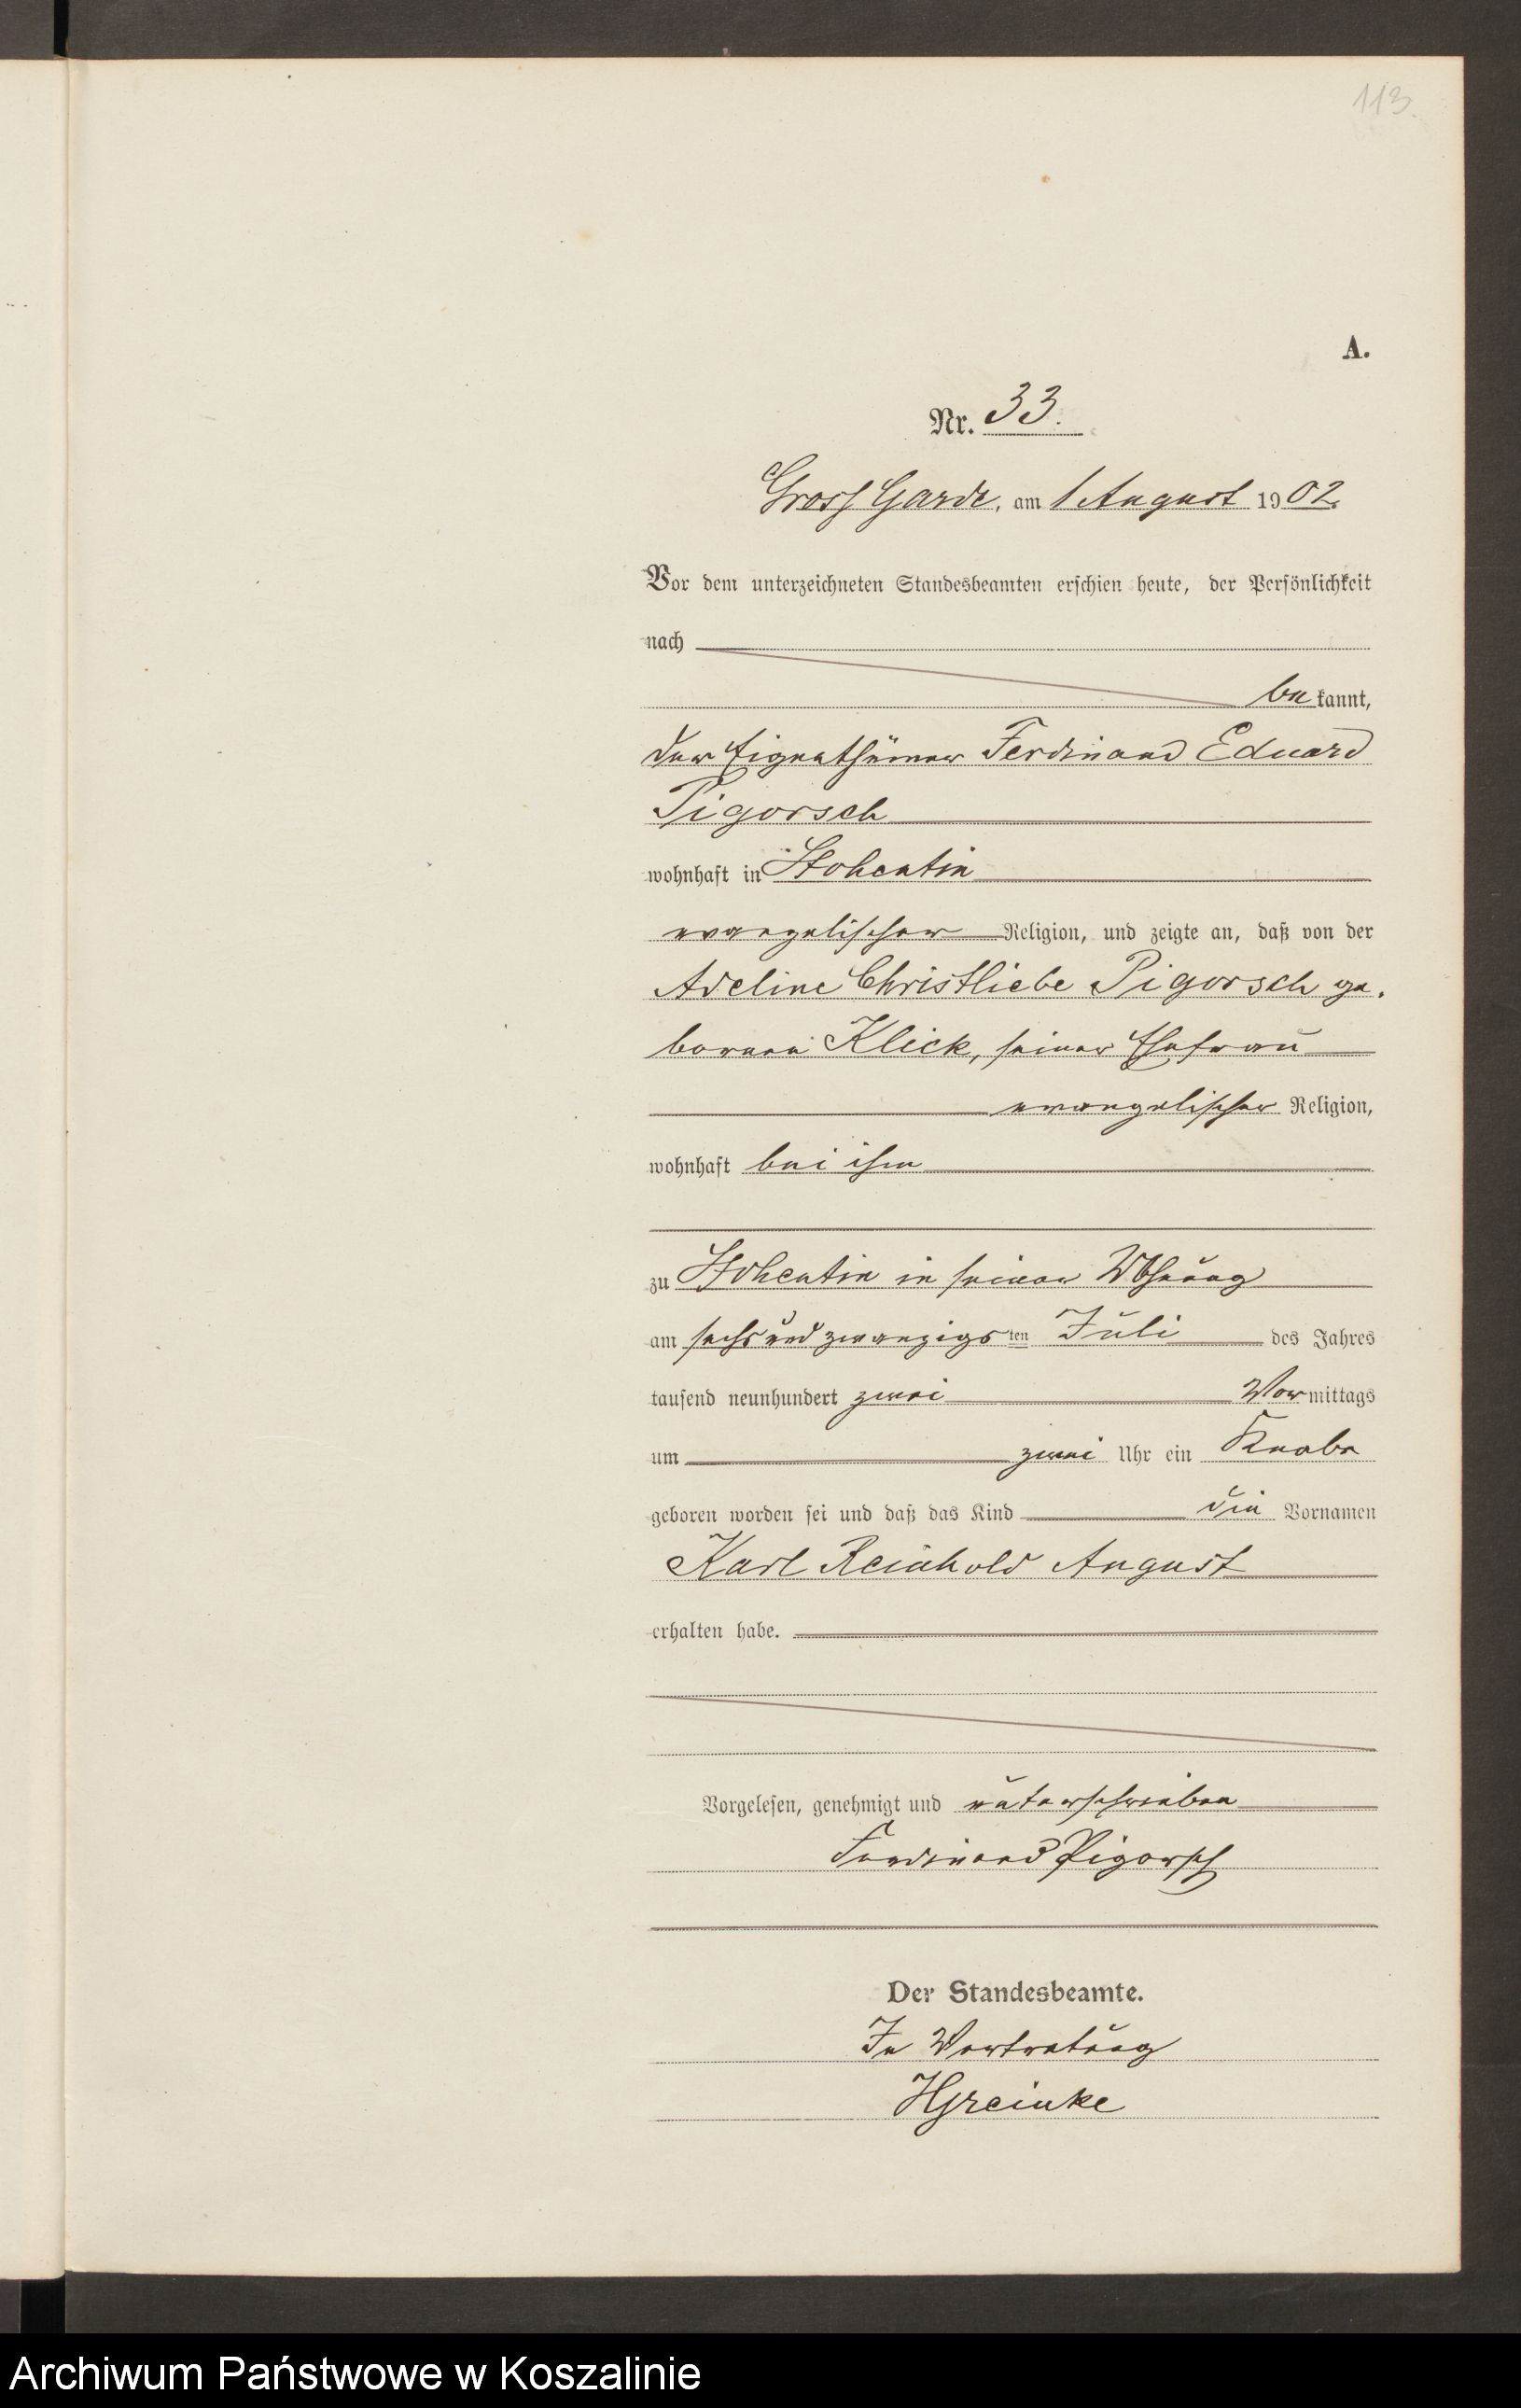 113.
A.
Nr. 33.
Gross Garde, am 1 August 1902.
Vor dem unterzeichneten Standesbeamten erschien heute, der Persönlichkeit
nach
be kannt,
der Eigenthümer Ferdinand Eduard
Pigorsch
wohnhaft in Stohentin
evangelischer Religion, und zeigte an, daß von der
Adeline Christliebe Pigorsch ge.
borenen Klick, seiner Ehefrau
evangelischer Religion,
wohnhaft bei ihm
zu Stohentin in seiner Wohnung
am sechs und zwanzigs ten Juli des Jahres
tausend neunhundert zwei Vor mittags
um zwei Uhr ein Knabe
geboren worden sei und daß das Kind die Vornamen
Karl Reinhold August
erhalten habe.
Vorgelesen, genehmigt und unterschrieben
Ferdinand Pigorsch
Der Standesbeamte.
In Vertretung
HGreinke
Archiwum Państwowe w Koszalinie